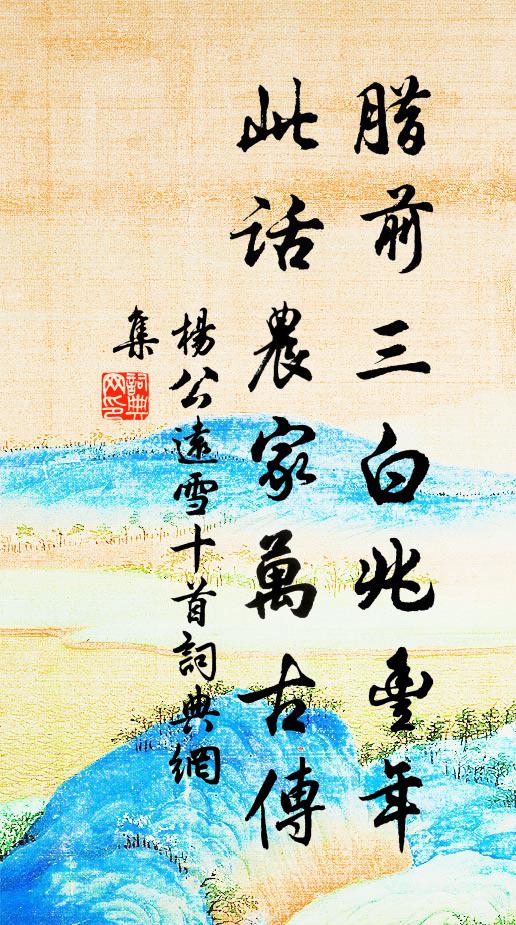 腊前三白兆豊年
此話農家萬古傳
楊公遠雪十首詞典網
集
詞典
网印